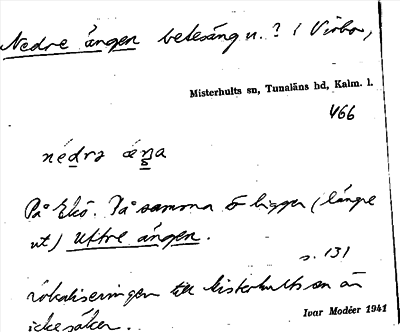 Nedre ängen betesäng n. ? i Virbo,
Misterhults sn, Tunaläns hd, Kalm. l.
466
nédrə æŋa
På Ekö. På samma ö ligger (längre
ut) Yttre ängen.
s. 131
Lokaliseringen till Misterhults sn är
icke säker.
Ivar Modéer 1941